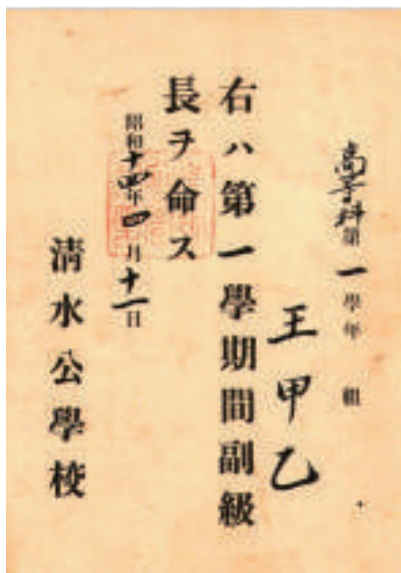 高等科第一學年 組
王甲乙
右ハ第一學期間副級
長ヲ命ス
昭和十四年四月十一日
清水公學校